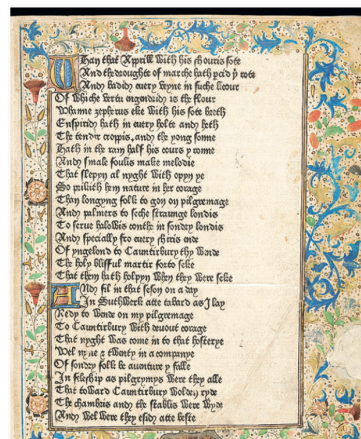 Whan that Apprill with his shouris sote
And the droughte of marche hath pcid þe rote
And badid euery veyne in suche licour
Of whiche vertu engendrid is the flour
Whanne zepherus eke with his sote breth
Enspirid hath in euery holte and heth
The tendir croppis, and the yong sonne
Hath in the ram half his cours yronne
And smale foulis make melodie
That slepyn al nyght with opyn ye
So prikith hem nature in her corage
Than longyng folk to gon on pilgremage
And palmers to seche straunge londis
To serue halowis couthe in sondry londis
And specially fro euery shiris ende
Of yngelond to Cauntirbury thy wende
The holy blisful martir forto seke
That them hath holpyn when they were seke
And fil in that seson on a day
In Suthwerk atte tabard as I lay
Redy to wende on my pilgremage
To Cauntirbury with deuout corage
That nyght was come in to that hosterye
Wel nyne & twenty in a companye
Of sondry folk be auenture y falle
In feleship as pilgrymys were they alle
That toward Cauntirbury wolden ryde
The chambris and the stablis were wyde
And wel were they esid atte beste